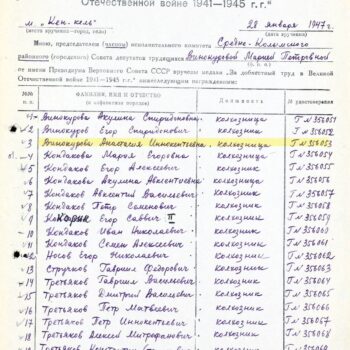 Отечественной войне 1941—1945 г.г."
м. „Кен-кель"
28 января 1947 г.
(место вручения—город, село)
(дата вручения)
Мною, председателем (членом) исполнительного комитета Средне-Колымского
районного (городского) Совета депутатов трудящихся Винокуровой Марией Петровной
от имени Президиума Верховного Совета СССР вручены медали „За доблестный труд в Великой
Отечественной войне 1941—1945 г.г." нижеследующим награжденным:
№№ ФАМИЛИЯ, ИМЯ И ОТЧЕСТВО Должность № удостоверения
1 Винокурова Акулина Спиридоновна. колхозница Г№356051
2 Винокуров Егор Спиридонович. колхозник Г№356052
3 Винокурова Анастасия Иннокентьевна. колхозница. Г№356053
4 Кондакова Мария Егоровна колхозница Г№356054
5 Кондаков Егор Алексеевич колхозник Г№356055
6 Кондакова Акулина Авксентьевна колхозница
7 Кондаков колхозник
8 Кондаков Петр Семенович колхозник
9 Егор Саввич II колхозник Г№356059
10 Кондаков Иван Николаевич колхозник Г№356060
11 Кондаков Семен Алексеевич колхозник Г№356061
12 Носов Егор Николаевич колхозник Г№356062
13 Стручков Гаврил Федорович колхозник Г№356063
14 Третьяков Гаврил Васильевич колхозник Г№356064
15 Третьяков Дмитрий колхозник Г№356065
16 Третьяков Петр Матвеевич колхозник Г№356066
17 Третьяков Петр Иннокентьевич колхозник Г№356067
18 Третьяков Алексей Митрофанович колхозник Г№356068
Третьяков